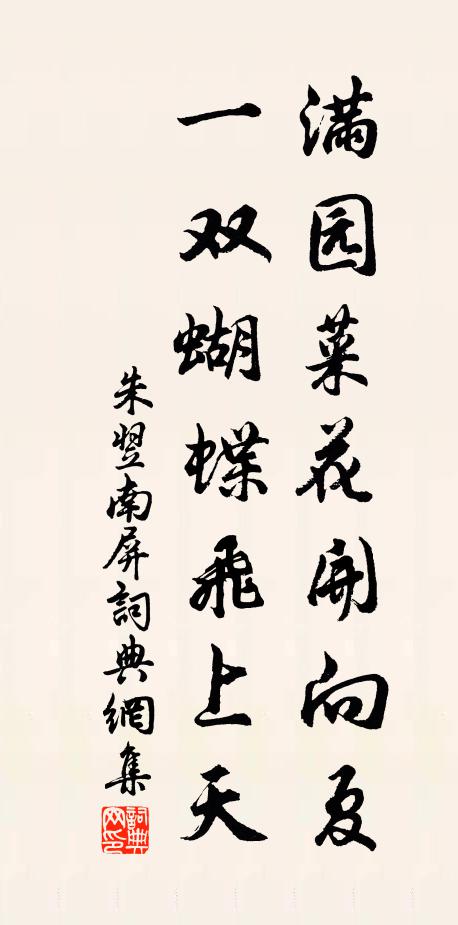 满园菜花開向夏
一双蝴蝶飛上天
朱翌南屏詞典網集
詞典网印